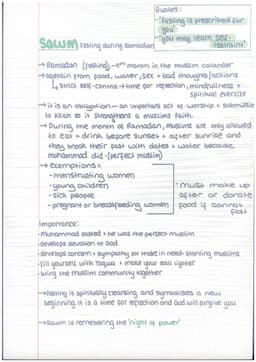 Quotes:
-'fasting is prescribed for you'
-'you may learn self-restraint'
Sawm fasting during ramadan
→ Ramadan (fasting) - 9th month in the muslim calander
→ abstain from food, water, sex + bad thoughts/actions
↳ strict self-control → time for reflection, mindfulness + spiritual exercise
→ it is an obligation - an important act of worship + submission
to Allah so it strengthens a muslims faith.
→ During the month of Ramadan, muslims are only allowed
to eat + drink before sunset + after sunrise and
they break their fast with dates + water because
mohammad did. (perfect muslim)
→ exemptions =
- menstruating women
- young children
- sick people
- pregnant or breastfeeding women
*must make up
after or donate
food if cannot
fast
Importance:
- Muhammad fasted + he was the perfect muslim
- develops devotion to God
- develops concern + sympathy for those in need - starving muslims
- fill yourself with taqwa + make your soul lighter
- bring the muslim community together
→ fasting is spiritually cleansing and symbolises a new
beginning. it is a time for reflection and God will forgive you
→ sawm is remembering the 'night of power'